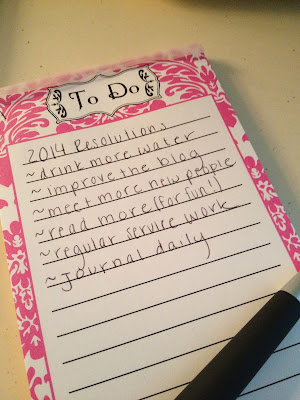 To Do
2014 Resolutions
~drink more water
~improve the blog
~meet more new people
~read more (for fun!)
~regular service work
~Journal daily